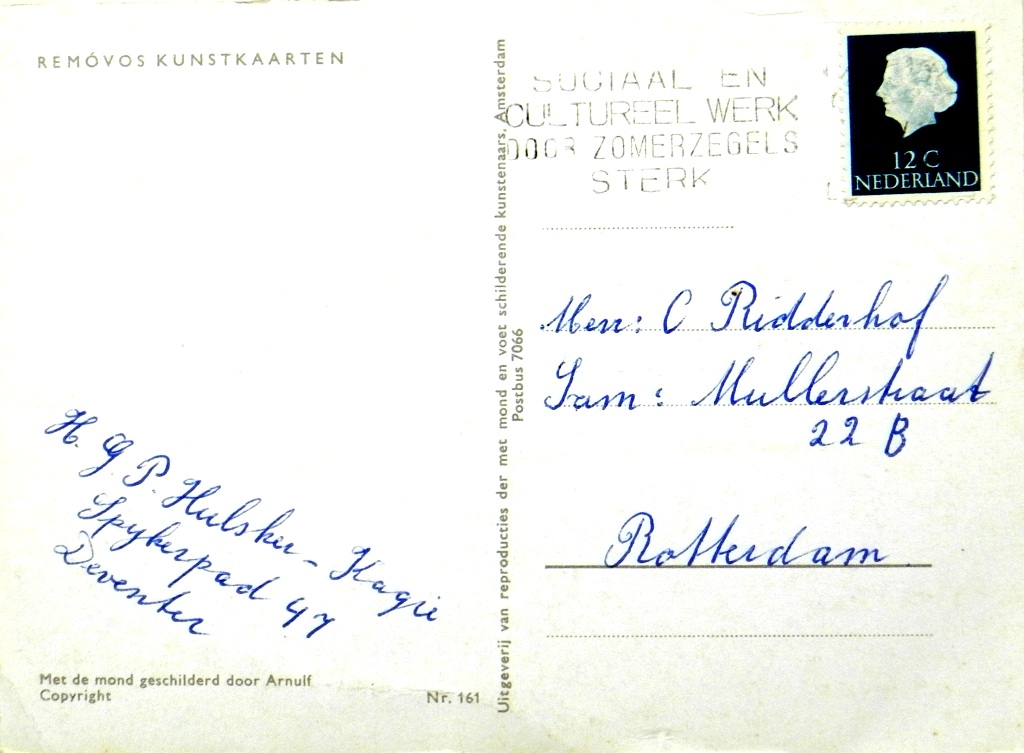 REMÓVOS KUNSTKAARTEN
H. G. P. Hulsker - Kagie
Spykerpad 47
Deventer
Met de mond geschilderd door Arnulf
Copyright
Nr. 161
Uitgeverij van reproducties der met mond en voet schilderende kunstenaars, Amsterdam
Postbus 7066
SOCIAAL EN
CULTUREEL WERK
DOOR ZOMERZEGELS
STERK
12 C
NEDERLAND
Menr: C Ridderhof
Sam: Mullerstraat
22 B
Rotterdam